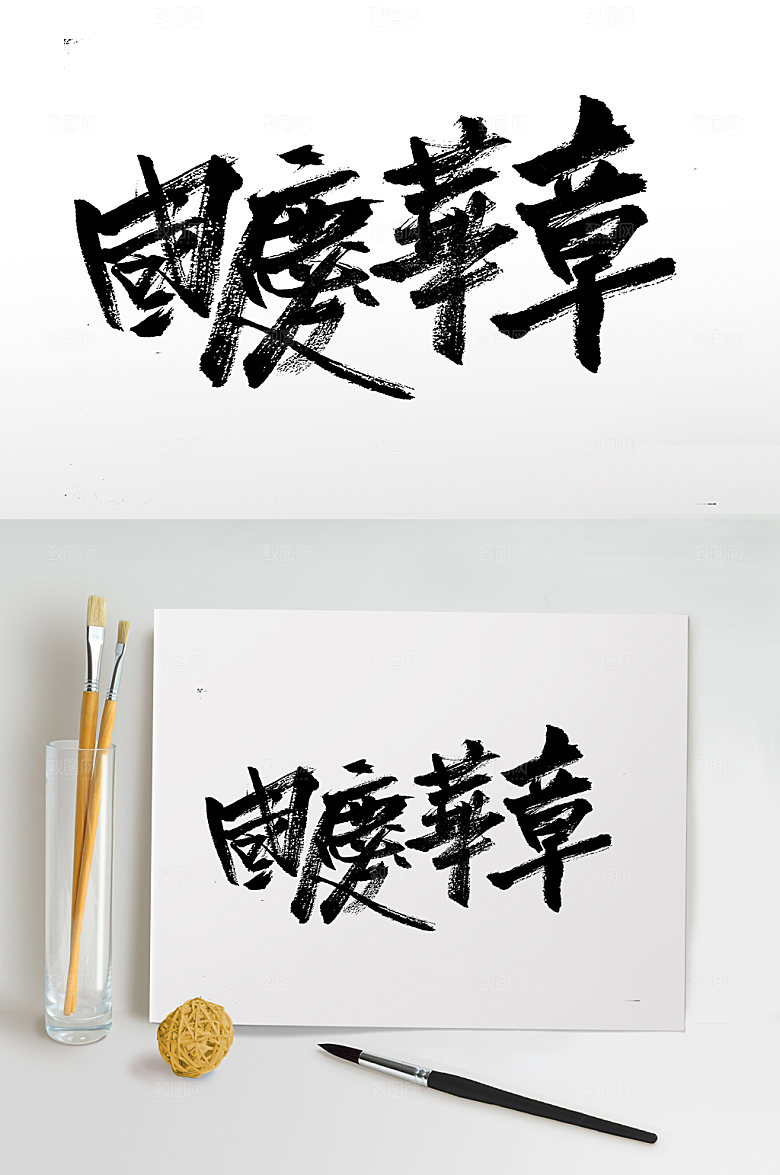 國慶華章
國慶華章